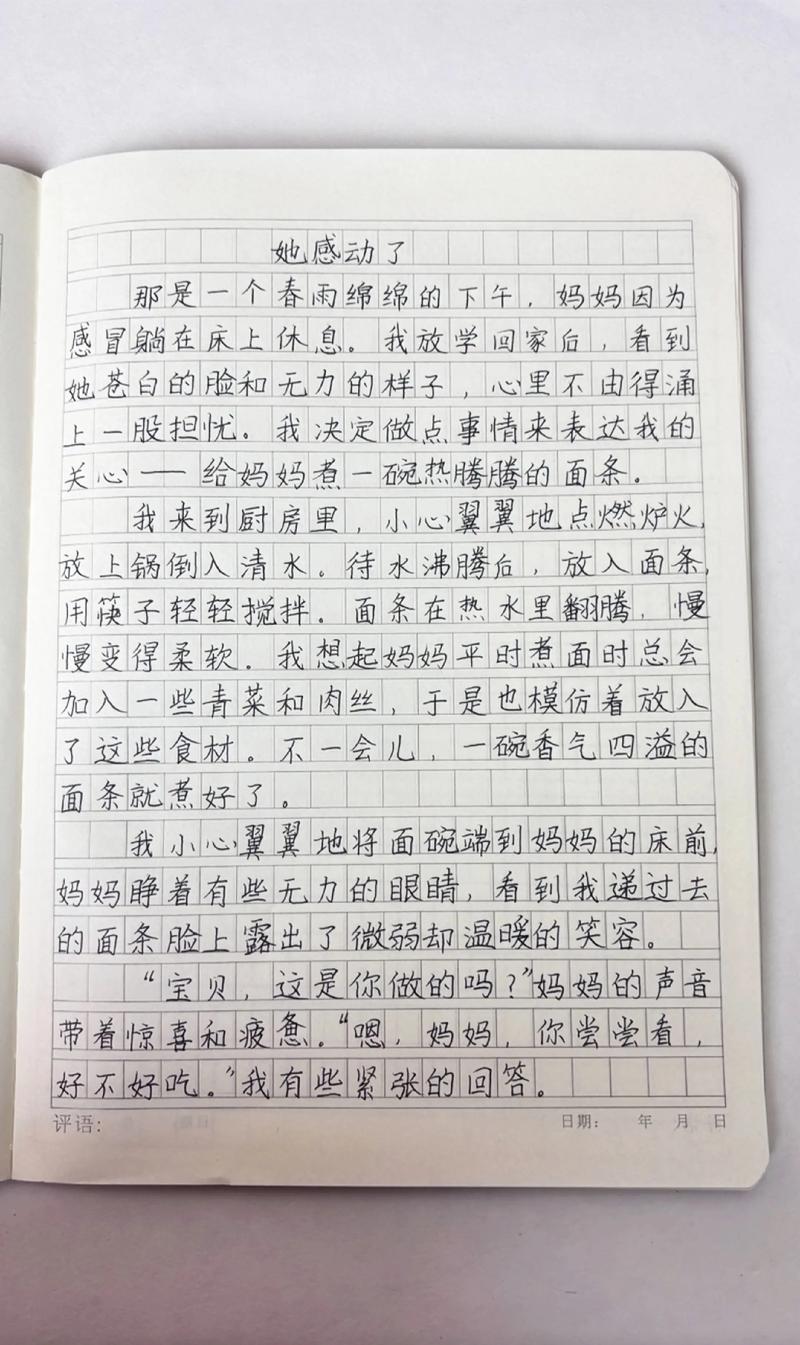 她感动了
那是一个春雨绵绵的下午，妈妈因为
感冒躺在床上休息。我放学回家后，看到
她苍白的脸和无力的样子，心里不由得涌
上一股担忧。我决定做点事情来表达我的
关心——给妈妈煮一碗热腾腾的面条。
我来到厨房里，小心翼翼地点燃炉火，
放上锅倒入清水。待水沸腾后，放入面条，
用筷子轻轻搅拌。面条在热水里翻腾，慢
慢变得柔软。我想起妈妈平时煮面时总会
加入一些青菜和肉丝，于是也模仿着放入
了这些食材。不一会儿，一碗香气四溢的
面条就煮好了。
我小心翼翼地将面碗端到妈妈的床前，
妈妈睁着有些无力的眼睛，看到我递过去
的面条脸上露出了微弱却温暖的笑容。
“宝贝，这是你做的吗？”妈妈的声音
带着惊喜和疲惫。“嗯，妈妈，你尝尝看，
好不好吃。”我有些紧张的回答。
评语：
日期： 年 月 日